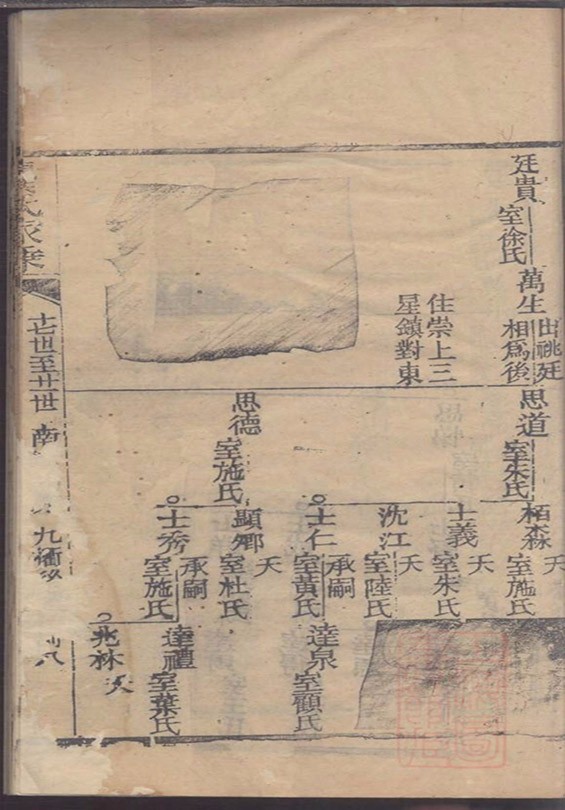 廷貴
室徐氏
萬生
出祧廷
相為後
住崇上三
星鎮對東
思道
室朱氏
思德
室施氏
栢森
天
室施氏
士義
天
室朱氏
沈江
天
室陸氏
士仁
承嗣
室黃氏
顯鄉
天
室杜氏
士秀
承嗣
室施氏
達泉
室顧氏
達禮
室葉氏
兆林
氏家乗
世至廿世
南
九衝